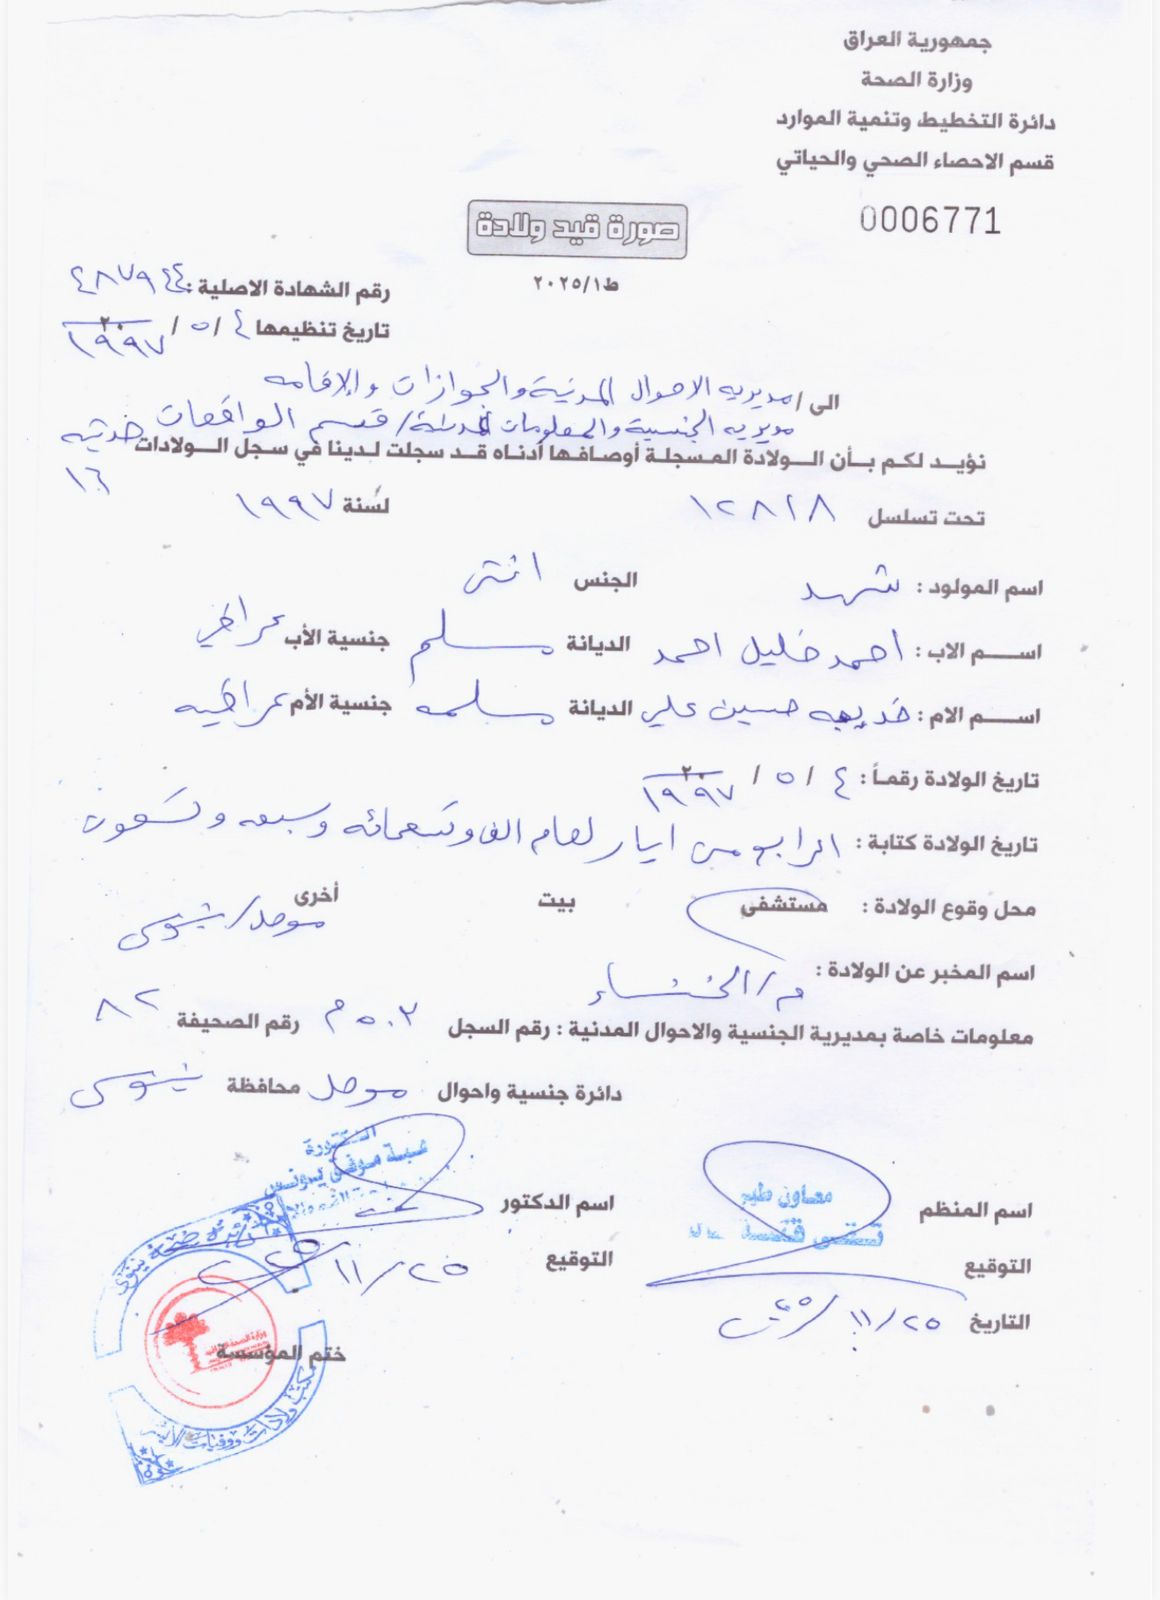 جمهورية العراق
وزارة الصحة
دائرة التخطيط وتنمية الموارد
قسم الاحصاء الصحي والحياتي
0006771
صورة قيد ولادة
ط٢٠٢٥/١
رقم الشهادة الاصلية : ٤٨٧٩٤٤
تاريخ تنظيمها ٤ / ٥ / ١٩٩٧
الى / مديريه الاحوال المدنية والجوازات والإقامه
مديريه الجنسية والمعلومات المدنية / قسم الواقعات
نؤيد لكم بأن الولادة المسجلة أوصافها أدناه قد سجلت لدينا في سجل الولادات
١٦
تحت تسلسل ١٢٨١٨ لسنة ١٩٩٧
اسم المولود : شهد الجنس انثى
اسم الاب : احمد خليل احمد الديانة مسلم جنسية الأب عراقي
اسم الام : خديجه حسين علي الديانة مسلمه جنسية الأم عراقيه
تاريخ الولادة رقماً : ٤ / ٥ / ١٩٩٧
تاريخ الولادة كتابة : الرابع من ايار لعام الف وتسعمائه وسبعه وتسعون
محل وقوع الولادة : مستشفى بيت أخرى
موصل / نينوى
اسم المخبر عن الولادة : م / الخنساء
معلومات خاصة بمديرية الجنسية والاحوال المدنية : رقم السجل ٥٠٢ م رقم الصحيفة ٨٢
دائرة جنسية واحوال موصل محافظة نينوى
الدكتورة
موفق يونس
اسم المنظم اسم الدكتور
معاون طبي
التوقيع التوقيع
٢٥ / ١١
التاريخ ٢٥ / ١١
دائرة صحة نينوى
وزارة الصحة
ختم المؤسسة
مكتب ولادات ووفيات الأيسر